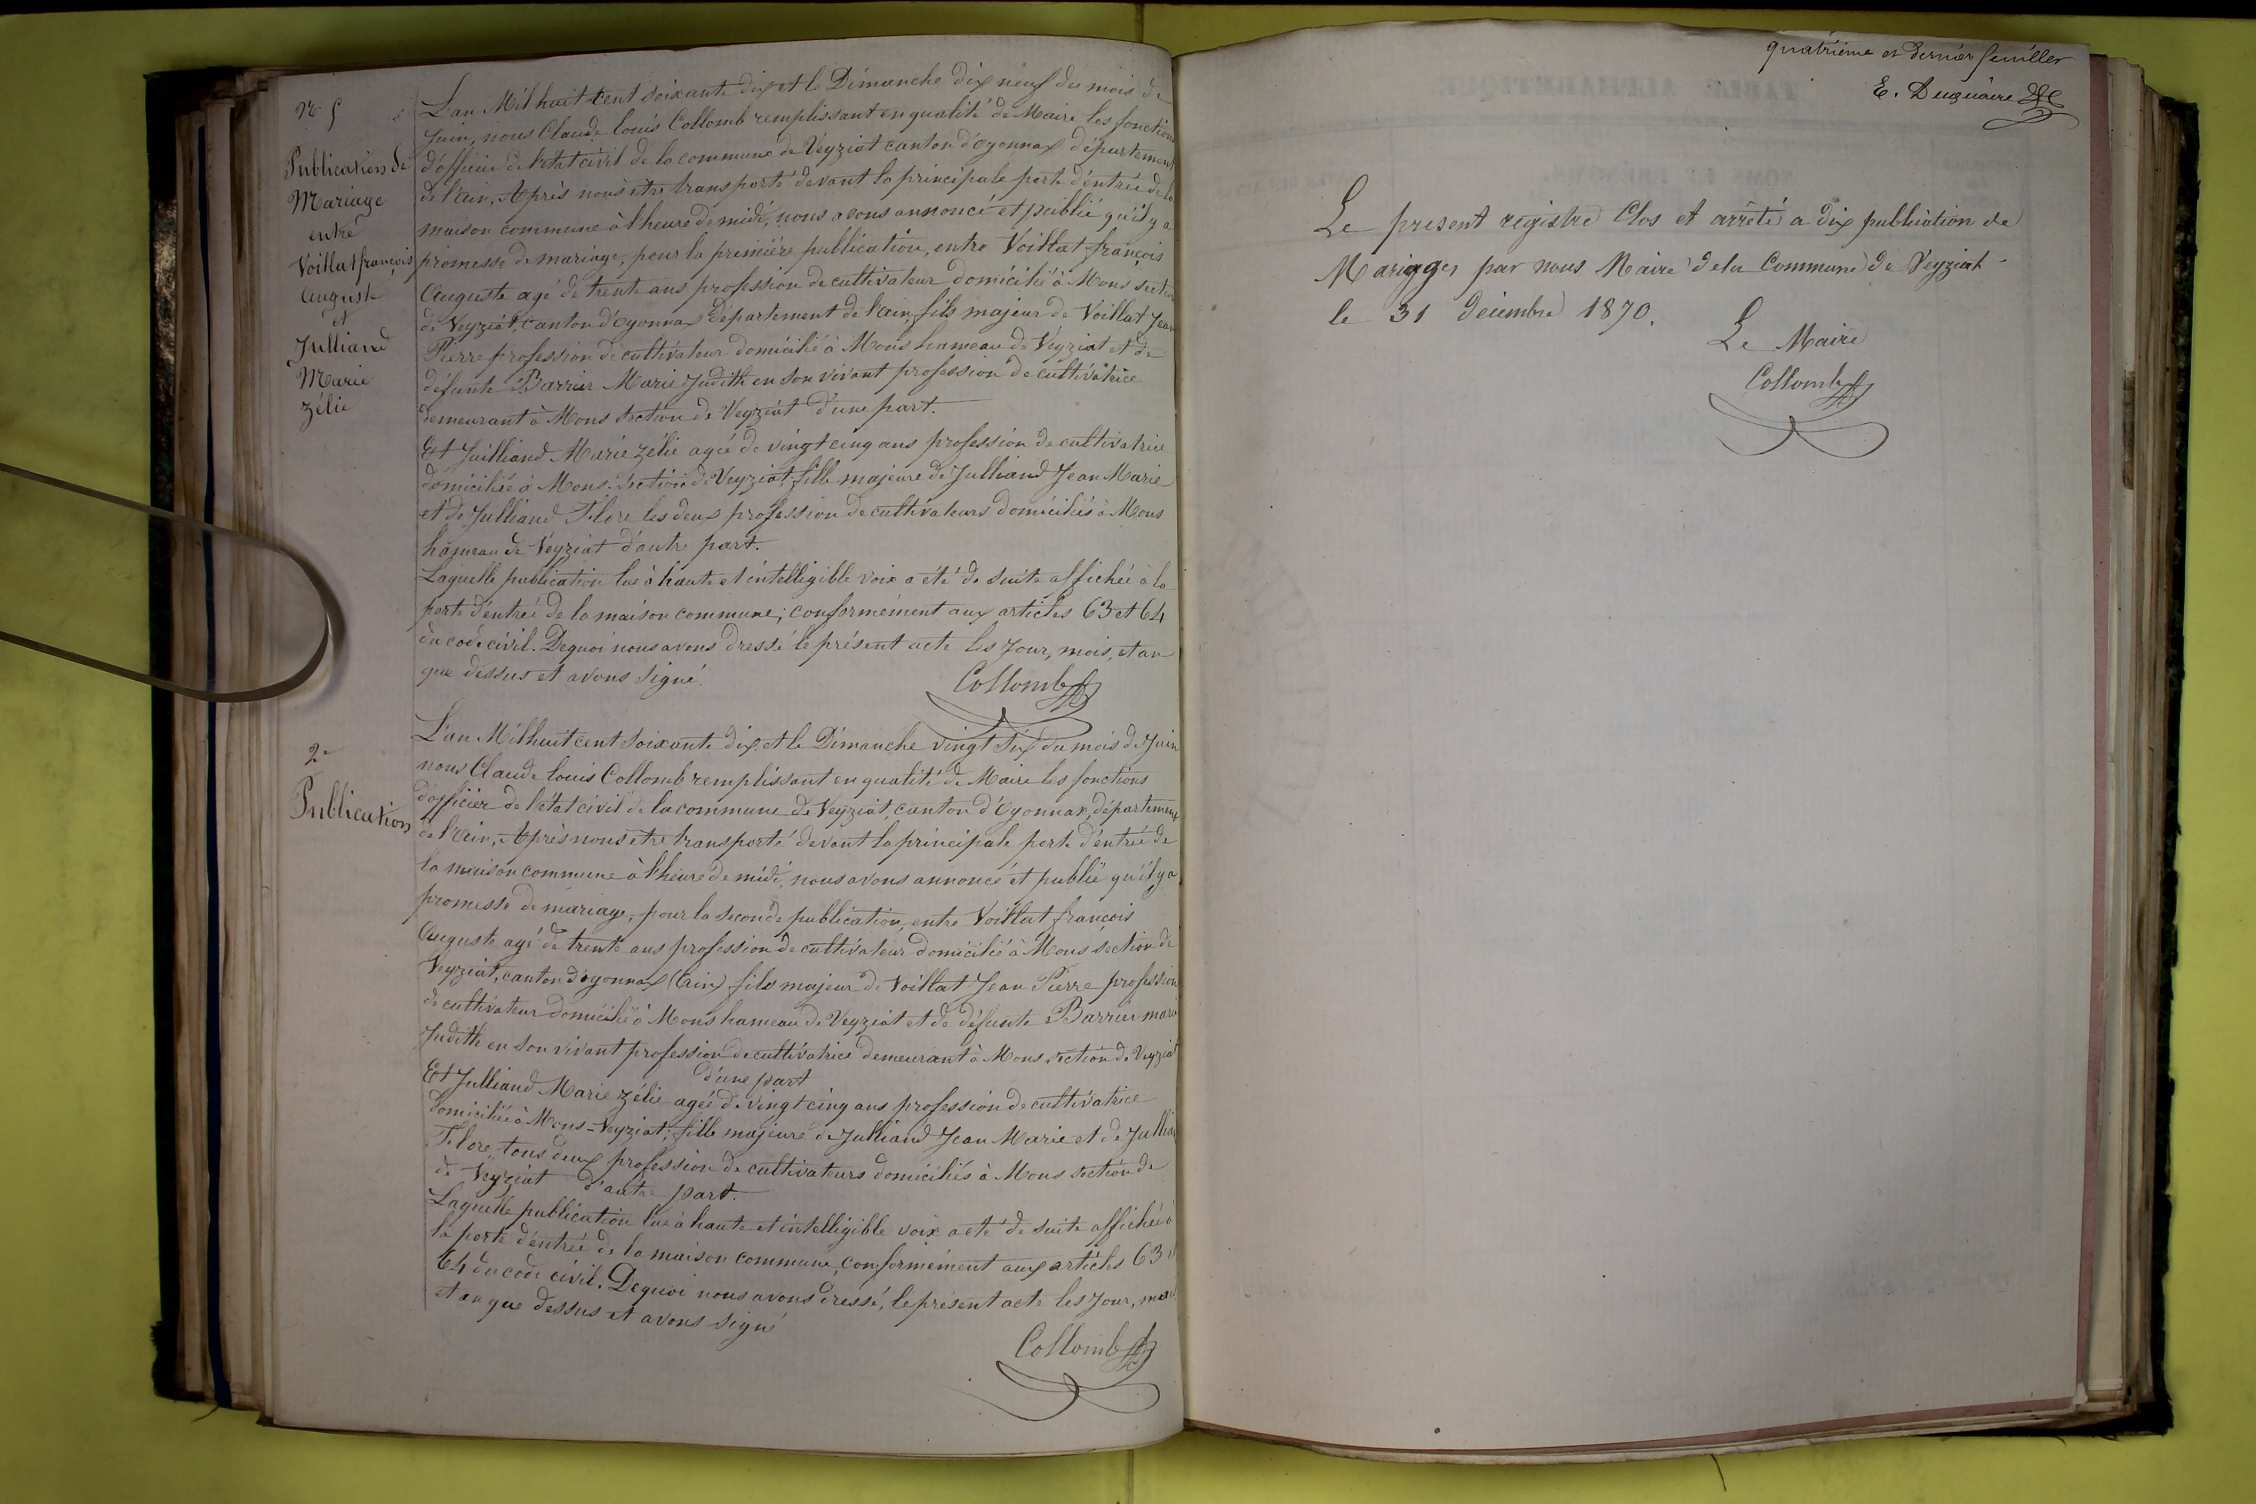 N° 5
Publication de
Mariage
entre
Voillat françois
Auguste
et
Julliand
Marie
Zélie
L'an Mil huit cent soixante dix et le Dimanche dix neuf du mois de
Juin, nous Claude Louis Collomb remplissant en qualité de Maire les fonctions
d'officier de l'état civil de la commune de Veyziat canton d'Oyonnax département
de l'Ain, Après nous être transporté devant la principale porte d'entrée de la
maison commune à l'heure de midi, nous avons annoncé et publié qu'il y a
promesse de mariage, pour la première publication, entre Voillat françois
Auguste agé de trente ans profession de cultivateur domicilié à Mons section
de Veyziat, canton d'Oyonnax département de l'ain, fils majeur de Voillat Jean
Pierre profession de cultivateur domicilié à Mons hameau de Veyziat et de
défunte Barrier Marie Judith en son vivant profession de cultivatrice
demeurant à Mons section de Veyziat d'une part.
Et Juilliand Marie Zélie agée de vingt cinq ans profession de cultivatrice
domiciliée à Mons section de Veyziat, fille majeure de Julliand Jean Marie
et de Julliand Flore les deux profession de cultivateurs domiciliés à Mons
hameau de Veyziat d'autre part.
Laquelle publication lue à haute et intelligible voix a été de suite affichée à la
porte d'entrée de la maison commune, conformément aux articles 63 et 64
du code civil. Dequoi nous avons dressé le présent acte les jour, mois, et an
que dessus et avons signé.
Collomb
2e
Publication
L'an Mil huit cent soixante dix et le Dimanche vingt six du mois de Juin
nous Claude Louis Collomb remplissant en qualité de Maire les fonctions
d'officier de l'état civil de la commune de Veyziat, canton d'Oyonnax, département
de l'Ain, Après nous être transporté devant la principale porte d'entrée de
la maison commune à l'heure de midi, nous avons annoncé et publié qu'il y a
promesse de mariage, pour la seconde publication, entre Voillat françois
Auguste agé de trente ans profession de cultivateur domicilié à Mons section de
Veyziat, canton d'oyonnax (Ain) fils majeur de Voillat Jean Pierre profession
de cultivateur domicilié à Mons hameau de Veyziat et de défunte Barrier marie
Judith en son vivant profession de cultivatrice demeurant à Mons section de Veyziat
d'une part
Et Julliand Marie Zélie agée de vingt cinq ans profession de cultivatrice
domiciliée à Mons-Veyziat, fille majeure de Julliand Jean Marie et de Julliand
Flore, tous deux profession de cultivateurs domiciliés à Mons section de
de Veyziat d'autre part.
Laquelle publication lue à haute et intelligible voix a été de suite affichée à
la porte d'entrée de la maison commune, conformément aux articles 63 et
64 du code civil. Dequoi nous avons dressé, le présent acte les jour, mois
et an que dessus et avons signé
Collomb
quatrième et dernier feuillet
E. Duquaire
Le present registre Clos et arrêté a dix publication de
Mariages par nous Maire dela Commune de Veyziat
le 31 décembre 1870.
Le Maire
Collomb